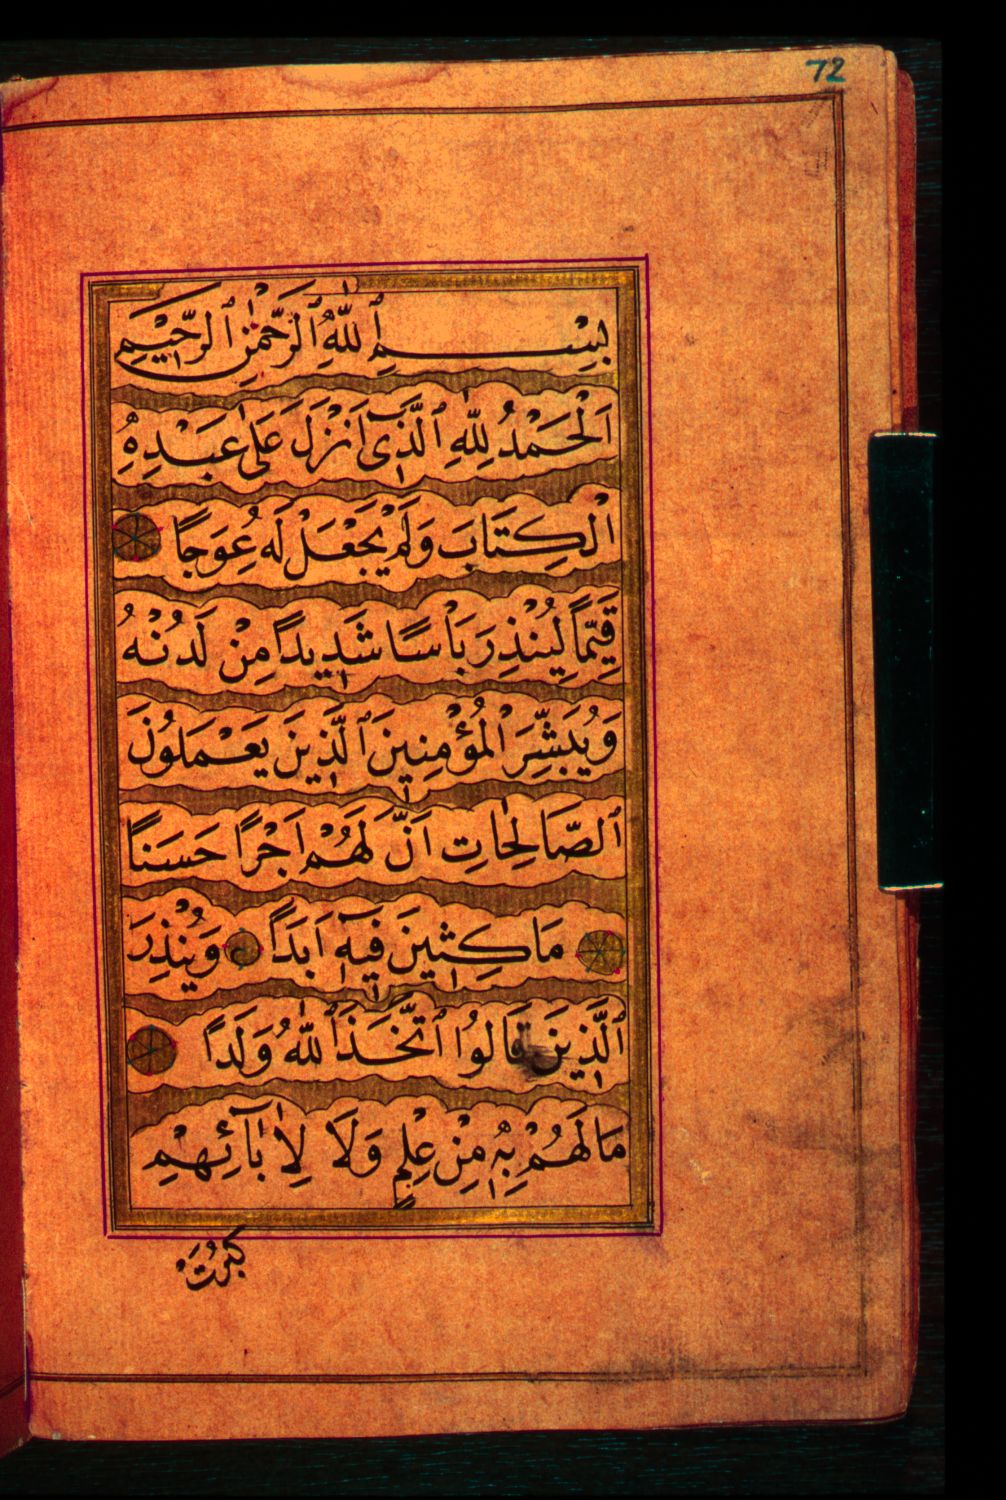 72
بِسْمِ ٱللّٰهِ ٱلرَّحْمٰنِ ٱلرَّحِيمِ
اَلْحَمْدُ لِلّٰهِ ٱلَّذِىٓ اَنْزَلَ عَلٰى عَبْدِهِ
الْكِتَابَ وَلَمْ يَجْعَلْ لَهُ عِوَجًا
قَيِّمًا لِيُنْذِرَ بَاْسًا شَدِيدًا مِنْ لَدُنْهُ
وَيُبَشِّرَ الْمُؤْمِنِينَ ٱلَّذِينَ يَعْمَلُونَ
ٱلصَّالِحَاتِ اَنَّ لَهُمْ اَجْرًا حَسَنًا
مَاكِثِينَ فِيهِ اَبَدًا وَيُنْذِرَ
ٱلَّذِينَ قَالُوا ٱتَّخَذَ ٱللّٰهُ وَلَدًا
مَا لَهُمْ بِهِ مِنْ عِلْمٍ وَلَا لِاٰبَآئِهِمْ
كَبُرَتْ